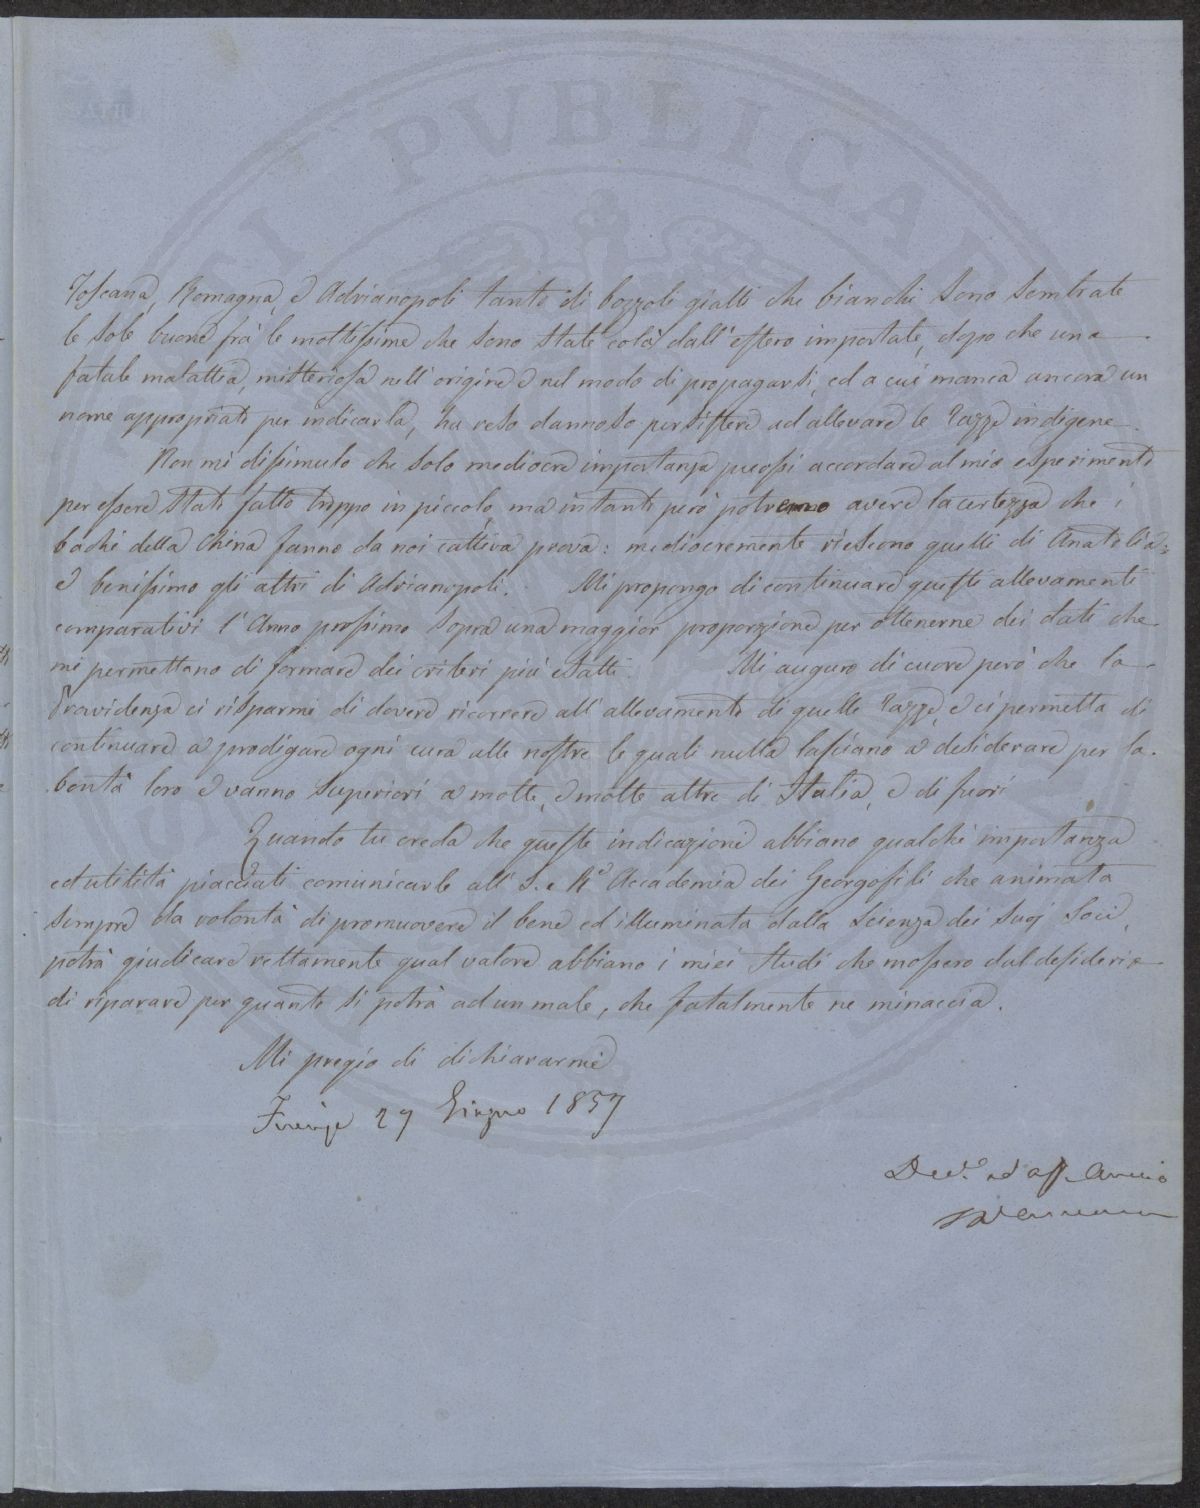 PVBLICAE
Toscana, Romagna, e Adrianopoli tanto di bozzoli gialli che bianchi sono sembrate
le sole buone frà le moltissime che sono state colà dall'estero importate, dopo che una
fatale malattia, misteriosa nell'origine e nel modo di propagarsi, ed a cui manca ancora un
nome appropriato per indicarla, ha reso dannoso persistere ad allevare le razze indigene.
Non mi dissimulo che solo mediocre importanza puossi accordare al mio esperimento
per essere stato fatto troppo in piccolo ma intanto però potremo avere la certezza che i
bachi della China fanno da noi cattiva prova: mediocremente riescono quelli di Anatolia:
e benissimo gli altri di Adrianopoli. Mi propongo di continuare questi allevamenti
comparativi l'Anno prossimo sopra una maggior proporzione per ottenerne dei dati che
mi permettano di formare dei criteri più esatti. Mi auguro di cuore però che la
Provvidenza ci risparmi di dovere ricorrere all'allevamento di quelle razze, e ci permetta di
continuare a prodigare ogni cura alle nostre le quali nulla lasciano a desiderare per la
bontà loro e vanno superiori a molte, e molte altre di Italia, e di fuori
Quando tu creda che queste indicazioni abbiano qualche importanza
ed utilità piacciati comunicarle all'I. e R.e Accademia dei Georgofili che animata
sempre da volontà di promuovere il bene ed illuminata dalla Scienza dei suoi Soci,
potrà giudicare rettamente qual valore abbiano i miei studi che mossero dal desiderio
di riparare per quanto si potrà ad un male, che fatalmente ne minaccia.
Mi pregio di dichiararmi
Firenze 27 Giugno 1857
Dev.o ed aff. Amico